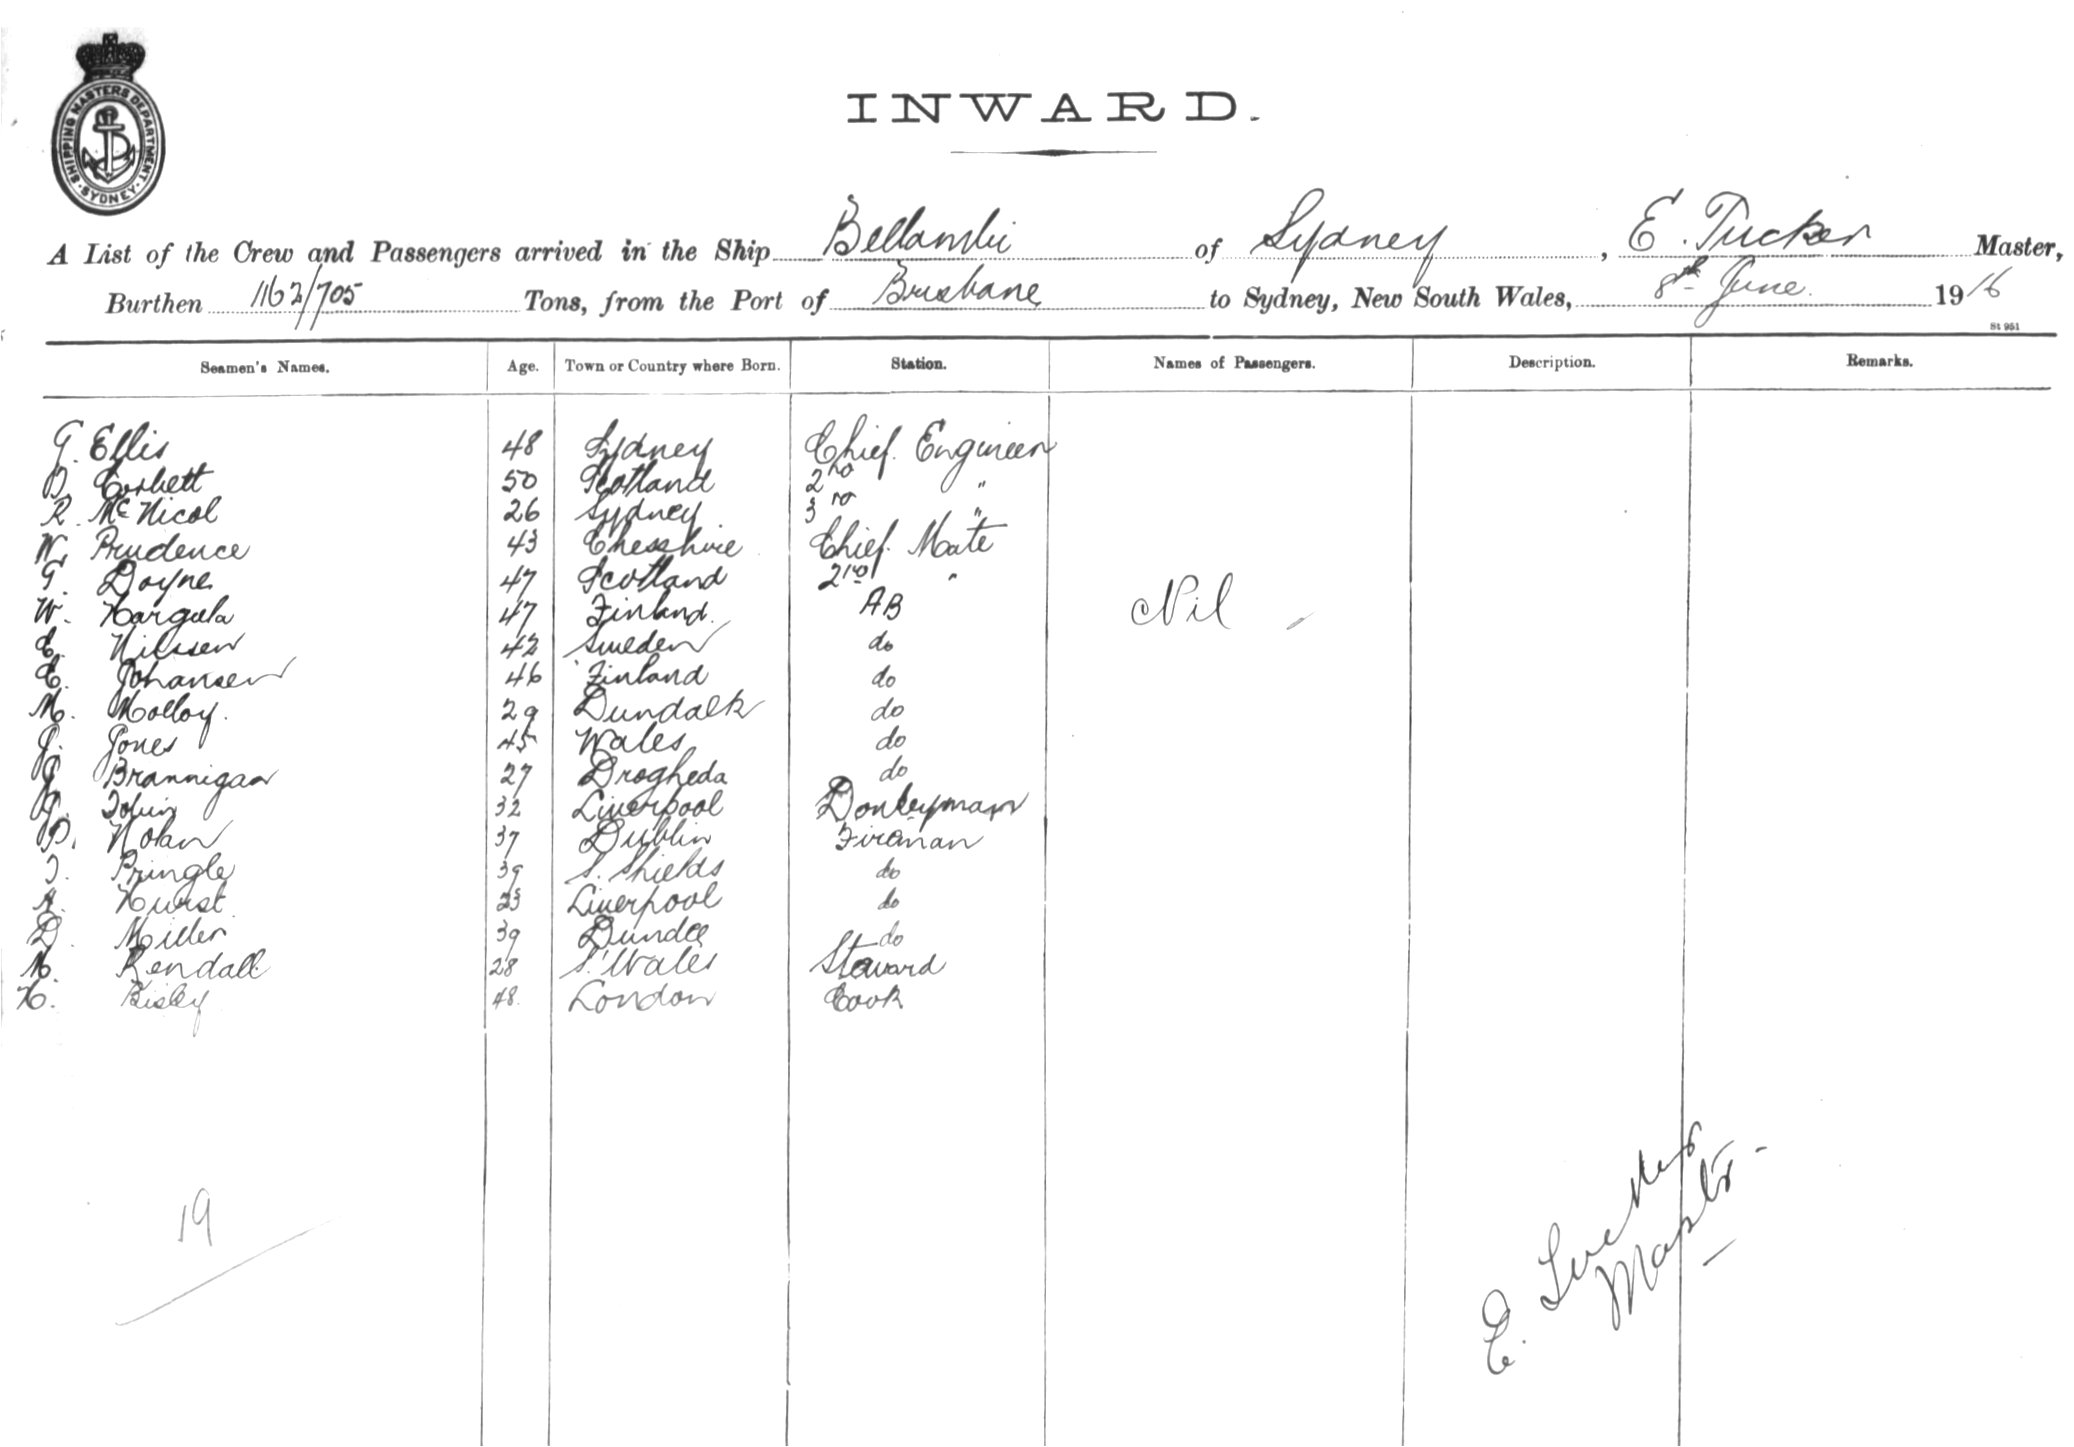 SHIPPING MASTERS DEPARTMENT · SYDNEY ·
INWARD.
A List of the Crew and Passengers arrived in the Ship Bellambi of Sydney, E. Tucker Master,
Burthen 1162/705 Tons, from the Port of Brisbane to Sydney, New South Wales, 8th June 1916
St 951
Seamen's Names. Age. Town or Country where Born. Station. Names of Passengers. Description. Remarks.
G. Ellis 48 Sydney Chief Engineer
D Corbett 50 Scotland 2nd "
R. McNicol 26 Sydney 3rd "
W. Prudence 43 Chesshire Chief Mate
G. Doyne 47 Scotland 2nd "
W. Hargula 47 Finland AB Nil
E. Nilssen 42 Sweden do
E. Johansen 46 Finland do
M. Molloy. 29 Dundalk do
J. Jones 45 Wales do
J. Brannigan 27 Drogheda do
J. Tobin 32 Liverpool Donkeyman
P. Nolan 37 Dublin Fireman
J. Pringle 39 S. Shields do
A. Hurst 23 Liverpool do
D. Miller 39 Dundee do
M. Rendall 28 S. Wales Steward
H. Bisley 48. London Cook
19
E. Tucker
Master